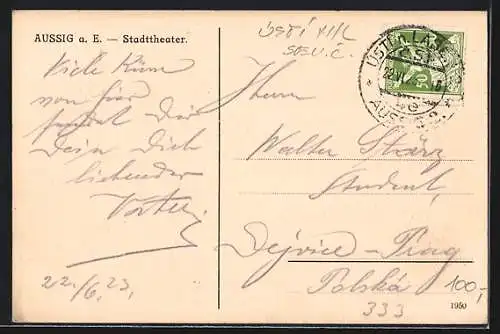 AUSSIG a. E. — Stadttheater.
ÚSTÍ N/L
SOSU.Č.
ÚSTÍ N. LABEM
ČSR
AUSSIG 2
50
Viele Küsse
von hier
sendet Dir
Dein Dich
liebender
Vater
22./6. 23.
Herrn
Walter Stärz
Student,
Dejvice-Prag
Polská
333
100,-
1950